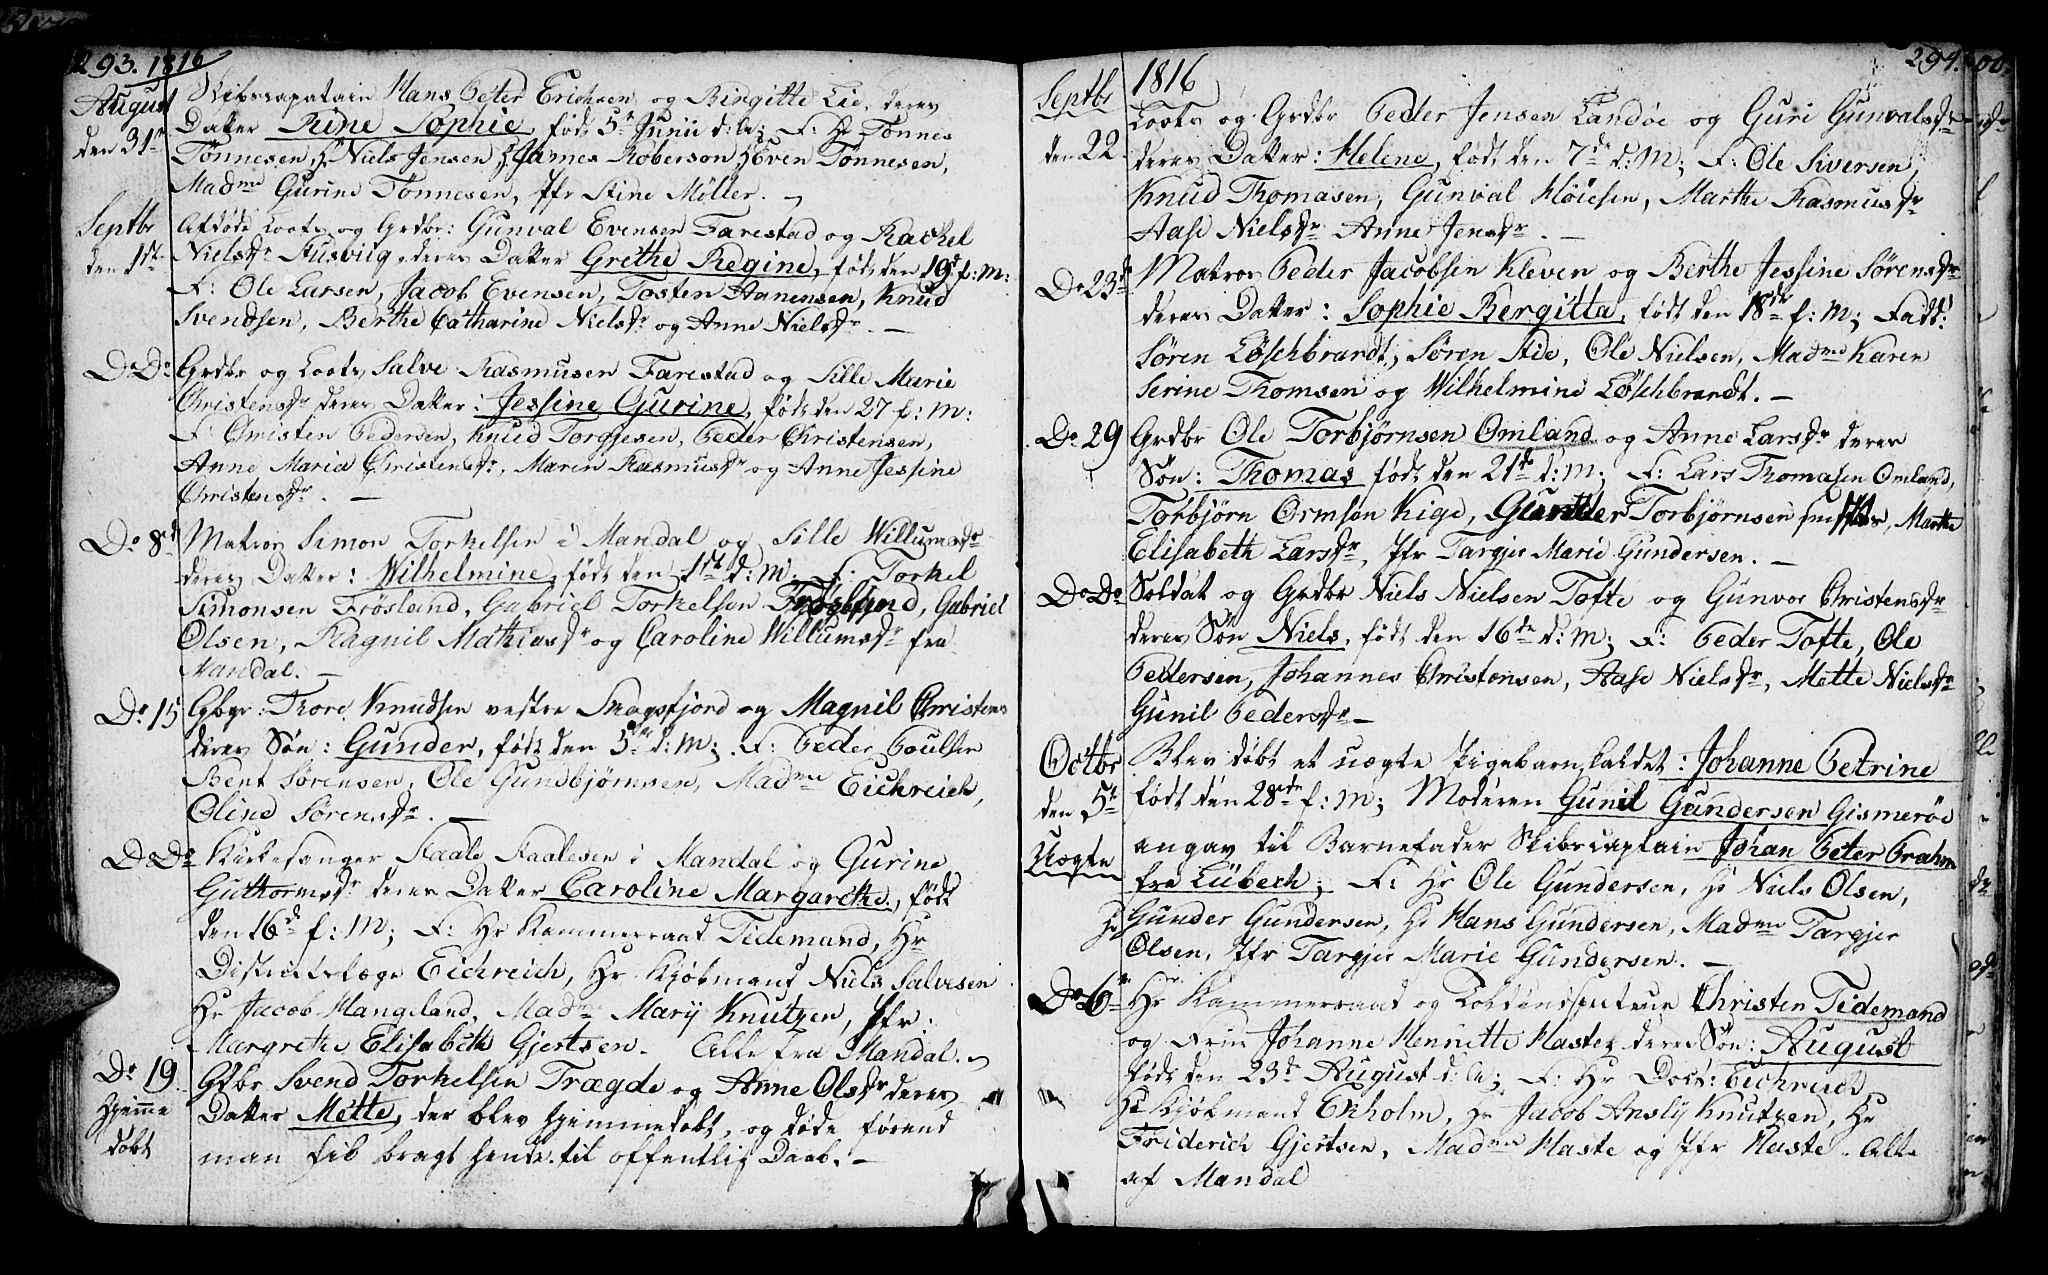 293. 1816
August
den 31te
Skibscapatain Hans Peter Erichsen og Birgitte Lie, deres
Datter Rine Sophie, født 5te Junii d: A; F: Hr Tønnes
Tønnesen, Hr Niels Jensen, Hr James Roberson Hr Even Tønnesen,
Madme Gurine Tønnesen, Jfr Stine Møller. —
Septbr
den 1ste
Afdøde Loots og Grdbr: Gunval Evensen Farestad og Rachel
Nielsdr Ausviig, deres Datter Grethe Regine, født den 19de f: M:
F: Ole Larsen, Jacob Evensen, Tosten Annensen, Knud
Svendsen, Berthe Catharine Nielsdr og Anne Nielsdr. —
Do Do
Grdbr og Loots Salve Rasmusen Farestad og Sille Marie
Christensdr deres Datter: Jessine Gurine, født den 27 f: M:
F: Christen Pedersen, Knud Torgjesen, Peder Christensen,
Anne Maria Christensdr, Maren Rasmusdr og Anne Jessine
Christensdr. —
Do 8de
Matros Simon Torkelsen i Mandal og Sille Willumsdr
deres Datter: Wilhelmine, født den 1ste d: M. F: Torkel
Simonsen Frøsland, Gabriel Torkelsen Frøsland, Gabriel
Olsen, Ragnil Mathiasdr og Caroline Willumsdr fra
Mandal. —
Do 15
Gbgr: Thore Knudsen vestre Snogsfjord og Magnil Christens
deres Søn: Gunder, født den 5te d: M; F: Peder Poulsen
Bent Sørensen, Ole Gundbjørnsen, Madme Eichreich,
Oline Sørensdr. —
Do Do
Kirkesanger Staale Staalesen i Mandal og Gurine
Guthormsdr deres Datter Caroline Margarethe, født
den 16de f: M; F: Hr Kammerraad Tidemand, Hr
Districtslæge Eichreich, Hr Kjøbmand Niels Salvesen
Hr Jacob Mangeland, Madme Marij Knutzen, Jfr:
Margrethe Elisabeth Gjertsen. Alle fra Mandal. —
Do 19.
Hjemme
døbt
Gdbr Svend Torkelsen Trægde og Anne Olsdr deres
Datter Mette, der blev hjemmedøbt, og døde førend
man fik bragt hende til offentlig Daab. —
294.
1816
Septbr
den 22.
Loots og Grdbr Peder Jensen Landøe og Guri Gunvalsdr
deres Datter: Helene, født den 7de d: M; F: Ole Siversen,
Knud Thomasen, Gunval Høiesen, Marthe Rasmusdr
Aase Nielsdr Anne Jensdr. —
Do 23de
Matros Peder Jacobsen Kleven og Berthe Jessine Sørensdr
deres Datter: Sophie Bergitta, født den 18de f: M; Fadd:
Søren Löschbrandt, Søren Stie, Ole Nielsen, Madme Karen
Serine Thomsen og Wilhelmine Löschbrandt. —
Do 29
Grdbr Ole Torbjørnsen Omland og Anne Larsdr deres
Søn: Thomas født den 21de d: M; F: Lars Thomasen Omland,
Torbjørn Ormsen Kige, Gunder Torbjørnsen, Marthe
Elisabeth Larsdr, Jfr Targjer Marie Gundersen. —
Do Do
Soldat og Grdbr Niels Nielsen Tofte og Gunvor Christensdr
deres Søn Niels, født den 16de d: M; F: Peder Tofte, Ole
Pedersen, Johannes Christensen, Aase Nielsdr, Mette Nielsdr
Gunil Pedersdr —
Octbr
den 5te
Uægte
Blev døbt et uægte Pigebarn kaldet: Johanne Petrine
født den 28de f: M; Moderen Gunil Gundersen Gismerøe
angav til Barnefader Skibscaptain Johan Peter Brahm
fra Lübech; F: Hr Ole Gundersen, Hr Niels Olsen,
Hr Gunder Gundersen, Hr Hans Gundersen, Madme Targjer
Olsen, Jfr Targjer Marie Gundersen. —
Do 6te
Hr Kammerraad og Toldinspecteur Christen Tidemand
og Frue Johanne Hennette Haste deres Søn: August
født den 23de August d: A; F: Hr Doct: Eichreich
Hr Kjøbmand Exholm, Hr Jacob Ansly Knutzen, Hr
Friderich Gjertsen, Madme Haste og Jfr Haste. Alle
af Mandal